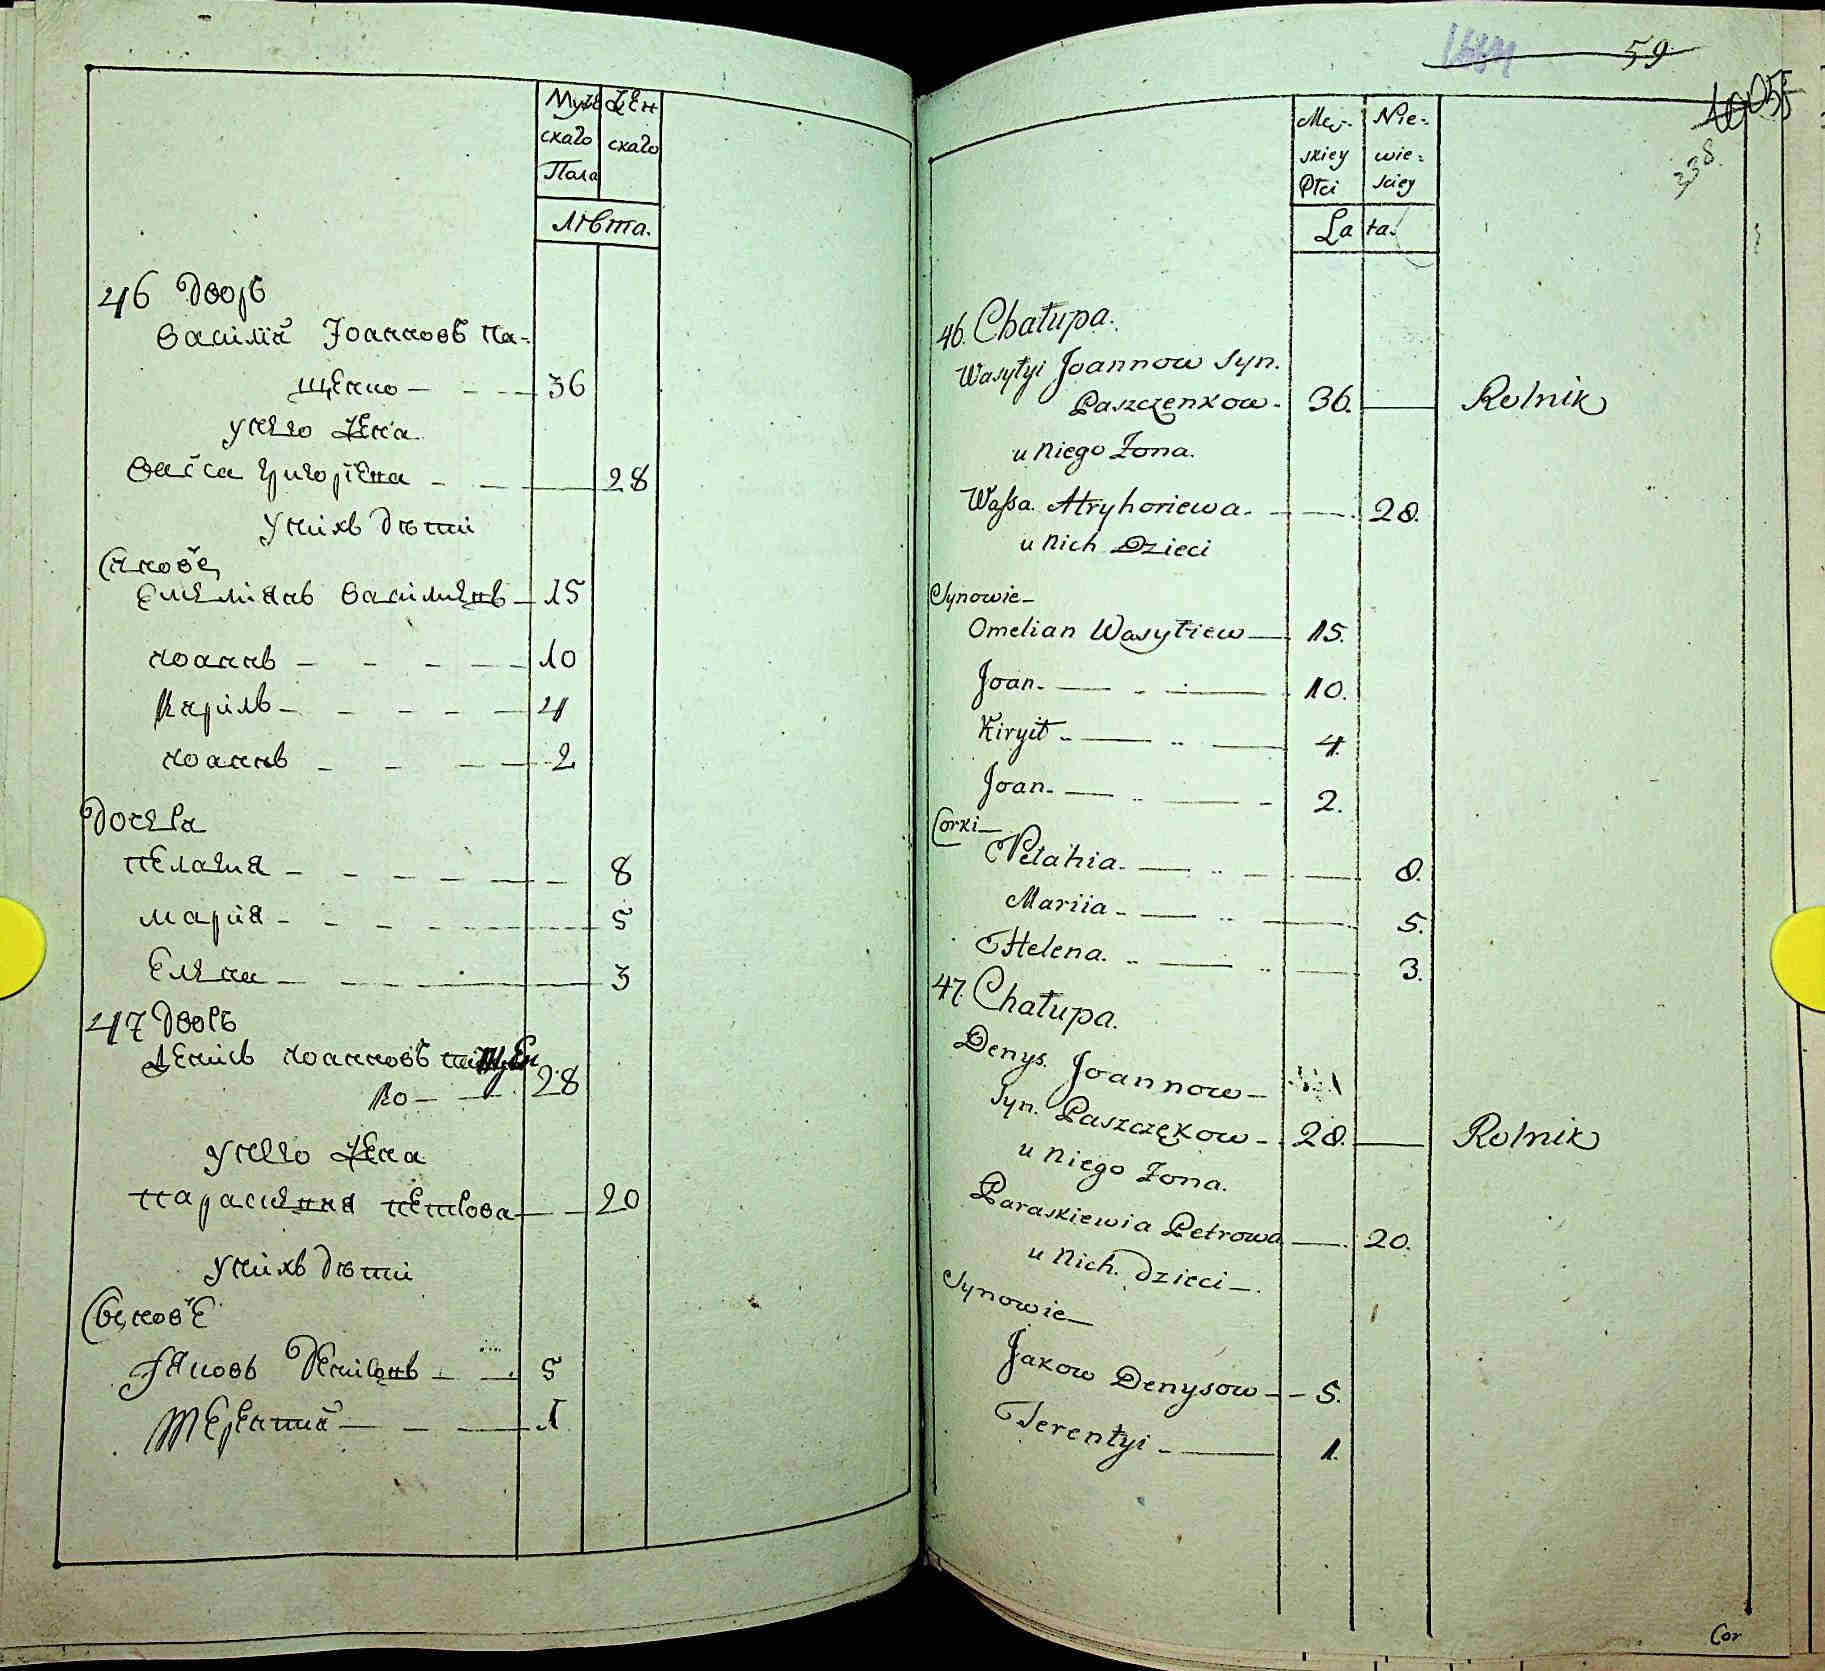 Мужескаго Пола
Женскаго
Лѣта.
46 Дворъ
Василій Іоанновъ Па-
щенко 36
у него жена
Васса Григоріева 28
у нихъ дѣти
Сынове
Емеліанъ Василіевъ 15
Иоаннъ 10
Кирилъ 4
Иоаннъ 2
Дочера
Пелагия 8
Мария 5
Елена 3
47 Дворъ
Денисъ Иоанновъ Пащен
ко 28
у него жена
Параскевия Петрова 20
у нихъ дѣти
Сынове
Яковъ Денисовъ 5
Терентий 1
59
1005
338.
Męs-
skiey
Płci
Nie-
wie-
sciey
Lata.
46. Chałupa.
Wasyłyi Joannow Syn.
Paszczenkow. 36. Rolnik
u Niego Żona.
Wassa. Hryhoriewa. 28.
u Nich Dzieci
Synowie
Omelian Wasyłiew 15.
Joan. 10.
Kirył 4.
Joan. 2.
Corki
Pelahia. 8.
Mariia 5.
Helena. 3.
47. Chałupa.
Denys. Joannow
Syn. Paszczękow 28. Rolnik
u Niego Żona.
Paraskiewia Petrowa 20.
u Nich. Dzieci.
Synowie
Jakow Denysow 5.
Terentyi 1.
Cor